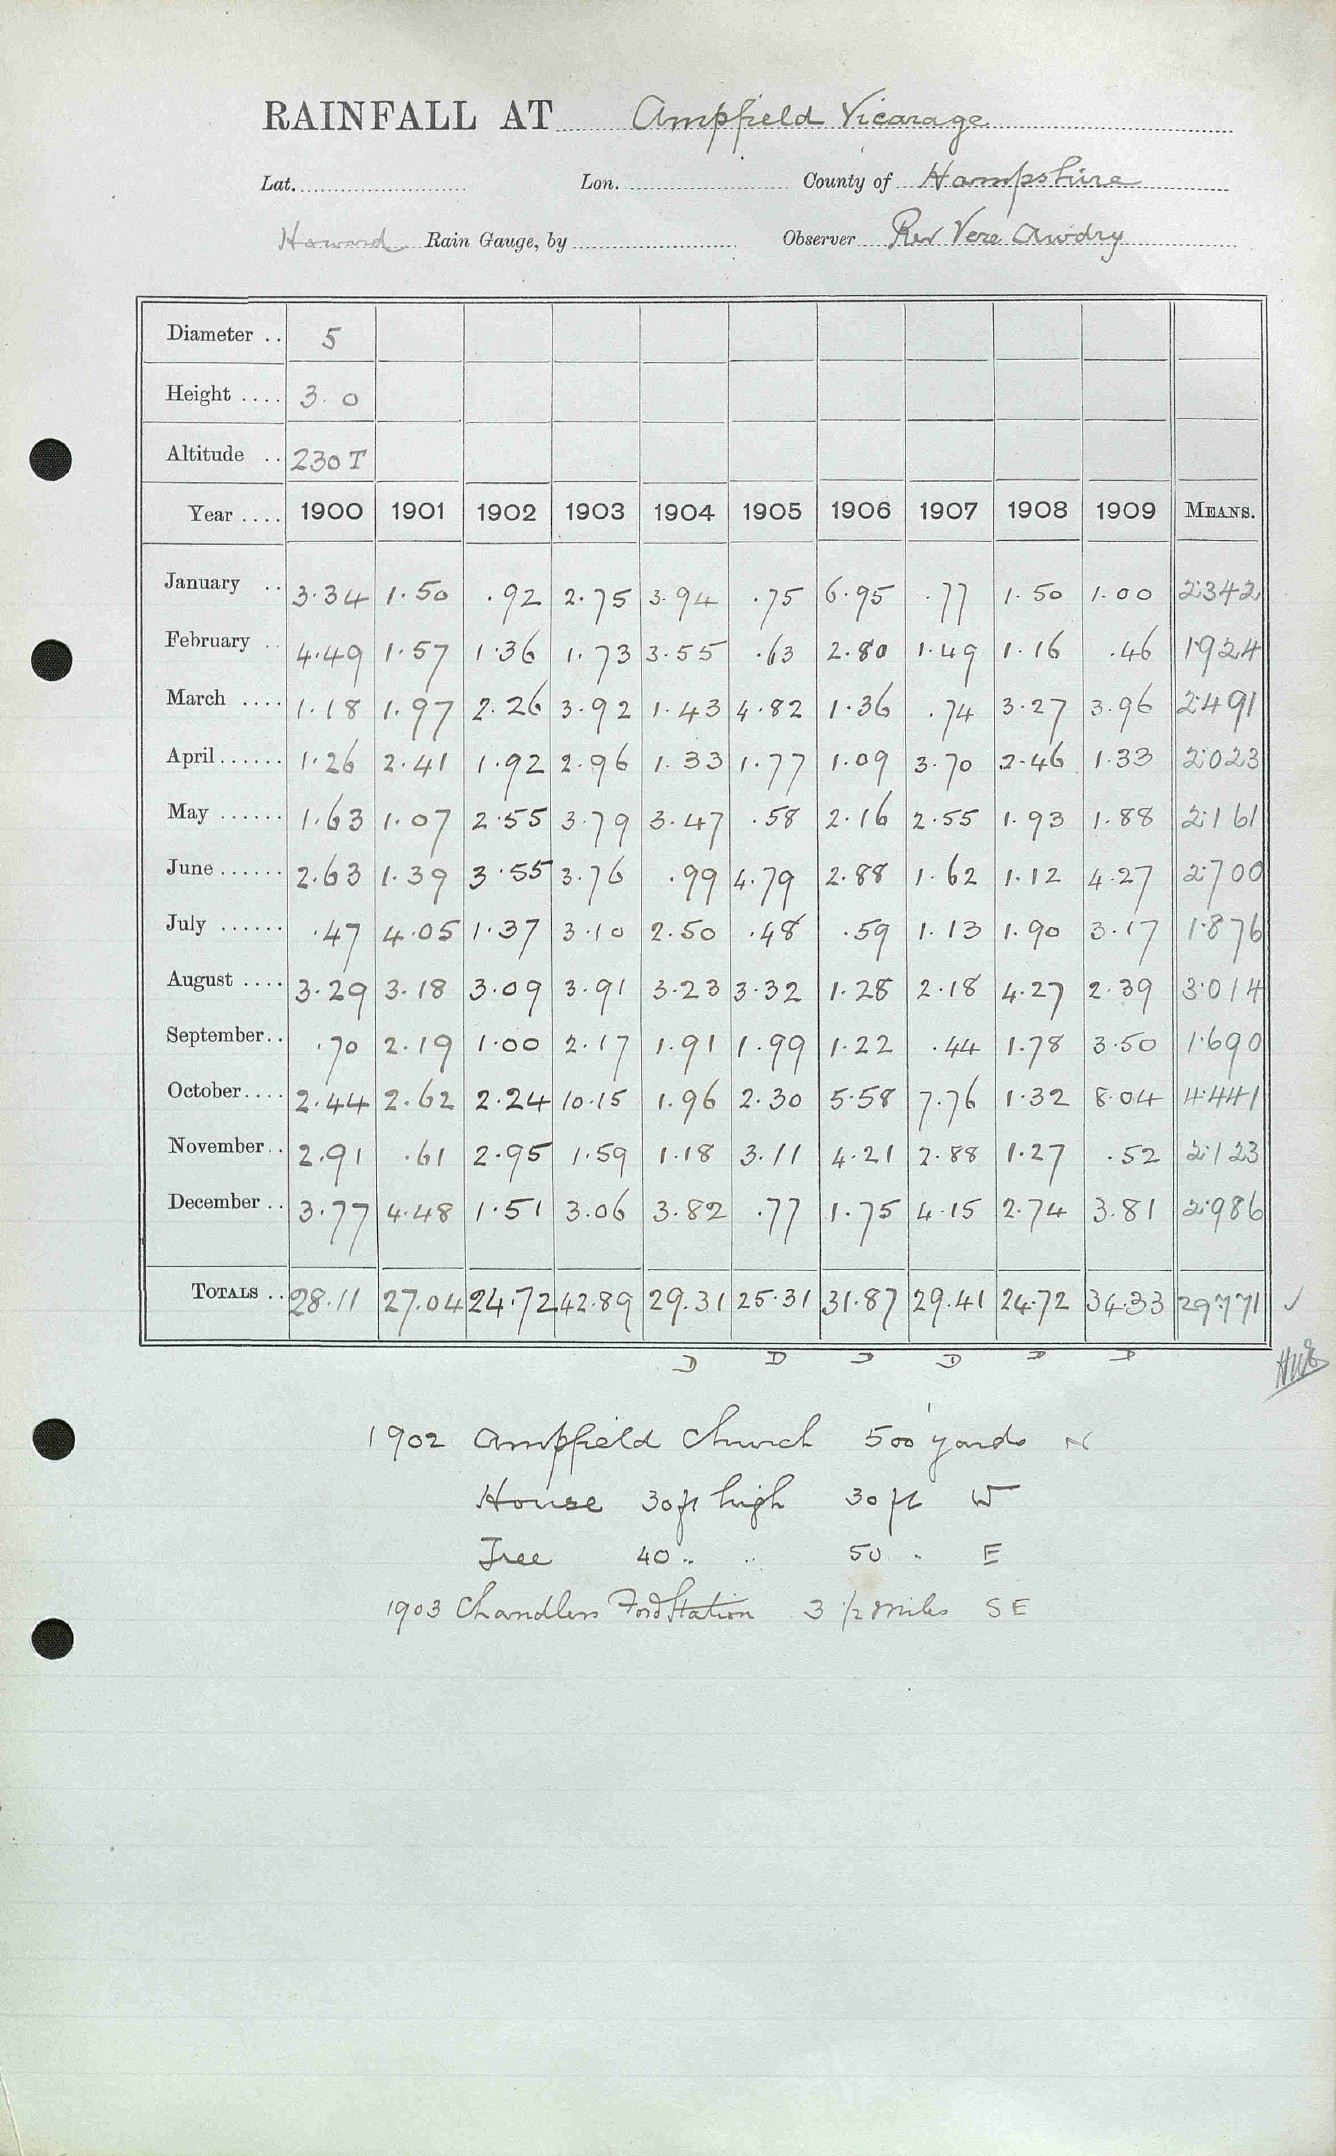 RAINFALL AT Ampfield Vicarage
Lat. Lon. County of Hampshire
Howard Rain Gauge, by Observer Rev Vere Awdry
Diameter .. 5
Height .... 3. 0
Altitude .. 230 T
Year .... 1900 1901 1902 1903 1904 1905 1906 1907 1908 1909 MEANS.
January .. 3.34 1.50 .92 2.75 3.94 .75 6.95 .77 1.50 1.00 2.342
February .. 4.49 1.57 1.36 1.73 3.55 .63 2.80 1.49 1.16 .46 1.924
March .... 1.18 1.97 2.26 3.92 1.43 4.82 1.36 .74 3.27 3.96 2.491
April ...... 1.26 2.41 1.92 2.96 1.33 1.77 1.09 3.70 2.46 1.33 2.023
May ...... 1.63 1.07 2.55 3.79 3.47 .58 2.16 2.55 1.93 1.88 2.161
June ...... 2.63 1.39 3.55 3.76 .99 4.79 2.88 1.62 1.12 4.27 2.700
July ...... .47 4.05 1.37 3.10 2.50 .48 .59 1.13 1.90 3.17 1.876
August .... 3.29 3.18 3.09 3.91 3.23 3.32 1.28 2.18 4.27 2.39 3.014
September.. .70 2.19 1.00 2.17 1.91 1.99 1.22 .44 1.78 3.50 1.690
October.... 2.44 2.62 2.24 10.15 1.96 2.30 5.58 7.76 1.32 8.04 4.441
November.. 2.91 .61 2.95 1.59 1.18 3.11 4.21 2.88 1.27 .52 2.123
December .. 3.77 4.48 1.51 3.06 3.82 .77 1.75 4.15 2.74 3.81 2.986
TOTALS .. 28.11 27.04 24.72 42.89 29.31 25.31 31.87 29.41 24.72 34.33 29.771 ✓
D D D D D D
1902 Ampfield Church 500 yards N
House 30ft high 30 ft W
Tree 40 " " 50 " E
1903 Chandlers Ford Station 3 1/2 miles SE